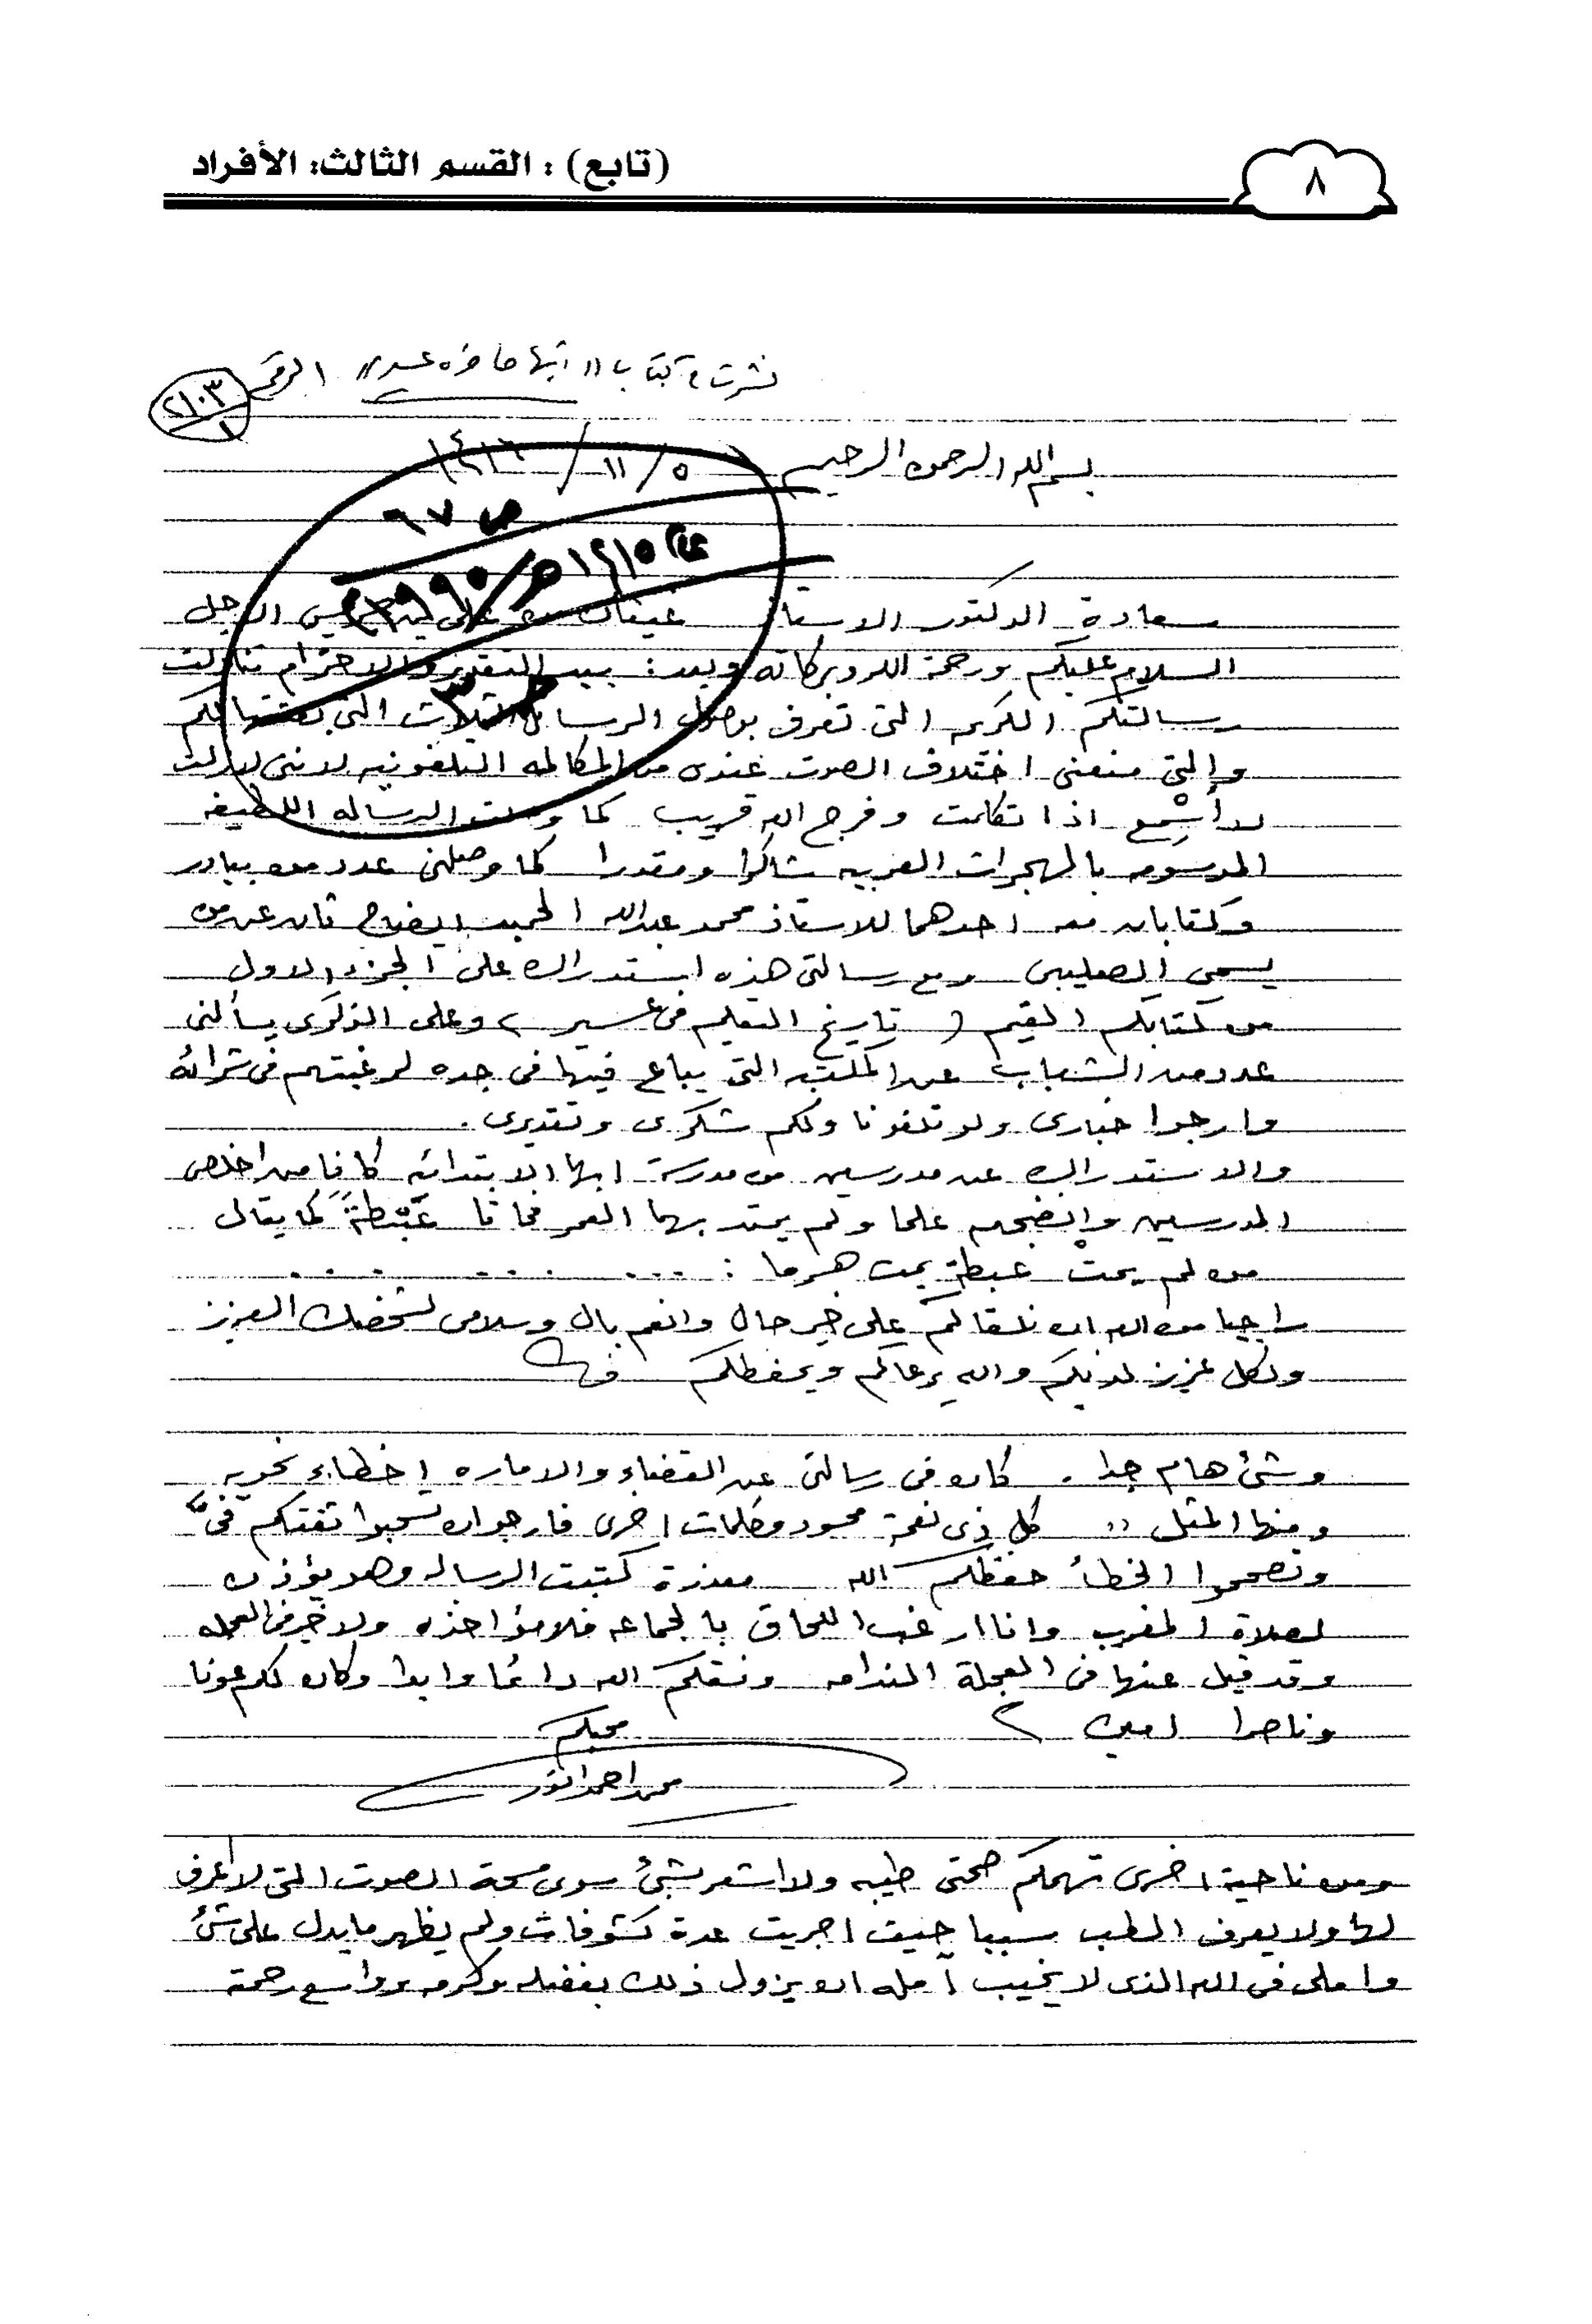 (تابع) : القسم الثالث: الأفراد
٨
نشرت في كتاب "ابها حاضرة عسير" الرقم
٢١٠٣
١
بسم الله الرحمن الرحيم ٥ / ١١ / ١٤١٦
ص ٩٧
١٤١٥هـ / ١٩٩٥
سعادة الدكتور الاستاذ غيثان بن علي بن جريس الاجل
السلام عليكم ورحمة الله وبركاته وبعد: بيد التقدير والاحترام تناولت
رسالتكم الكريمه التى تعرف بوصول الرسائل الثلاث التى بعثتها لكم
والتى منعنى اختلاف الصوت عندى من المكالمه التلفونيه لاننى لازلت
لا أسْمِع اذا تكلمت وفرج الله قريب كما وصلت الرساله اللطيفه
الموسومه بالهجرات العربيه شاكرا ومقدرا كما وصلنى عدد من بيادر
وكتابان معه احدهما للاستاذ محمد عبدالله الحميد ايضاح ثان عن من
يسمى الصليبى ومع رسالتى هذه استدراك على الجزء الاول
من كتابكم القيم ( تاريخ التعليم فى عسير ) وعلى الذكرى يسألنى
عدد من الشباب عن المكتبه التى يباع فيها فى جده لرغبتهم فى شرائه
وارجوا اخبارى ولو تلفونا ولكم شكرى وتقديرى .
والاستدراك عن مدرسين من مدرسة ابها الابتدائه كانا من اخلص
المدرسين وانضجهم علما ولم يمتد بهما العمر فماتا غَبْطَةً كما يقال
من لم يمتْ غبطة يمت هرما : . . . . . . . . .
راجيا من الله ان نلقاكم على خير حال وانعم بال وسلامى لشخصك العزيز
ولكل عزيز لديكم والله يرعاكم ويحفظكم
وشئ هام جدا . كان فى رسالتى عن القضاء والاماره اخطاء نحويه
ومنها المثل " كل ذى نعمة محسود وكلمات اخرى فارجوا ان تسحبوا ثقتكم فىَّ "
وتصححوا الخطأ حفظكم الله معذرة كتبت الرساله وهو يؤذن
لصلاة المغرب وانا ارغب اللحاق بالجماعه فلا مؤاخذه ولا خير فى العجله
وقد قيل عنها فى العجلة الندامه ونسقلكم الله دائما وابدا وكان لكم عونا
وناصرا امين
محبكم
محمد احمد انور
ومن ناحية اخرى تهمكم صحتى طيبه ولا اشعر بشئ سوى بحة الصوت التى لا اعرف
لها ولا يعرف الطب سببا حيث اجريت عدة كشوفات ولم يظهر ما يدل على شئ
واملى فى الله الذى لا يخيب آمله ان يزول ذلك بفضله وكرمه وواسع رحمة